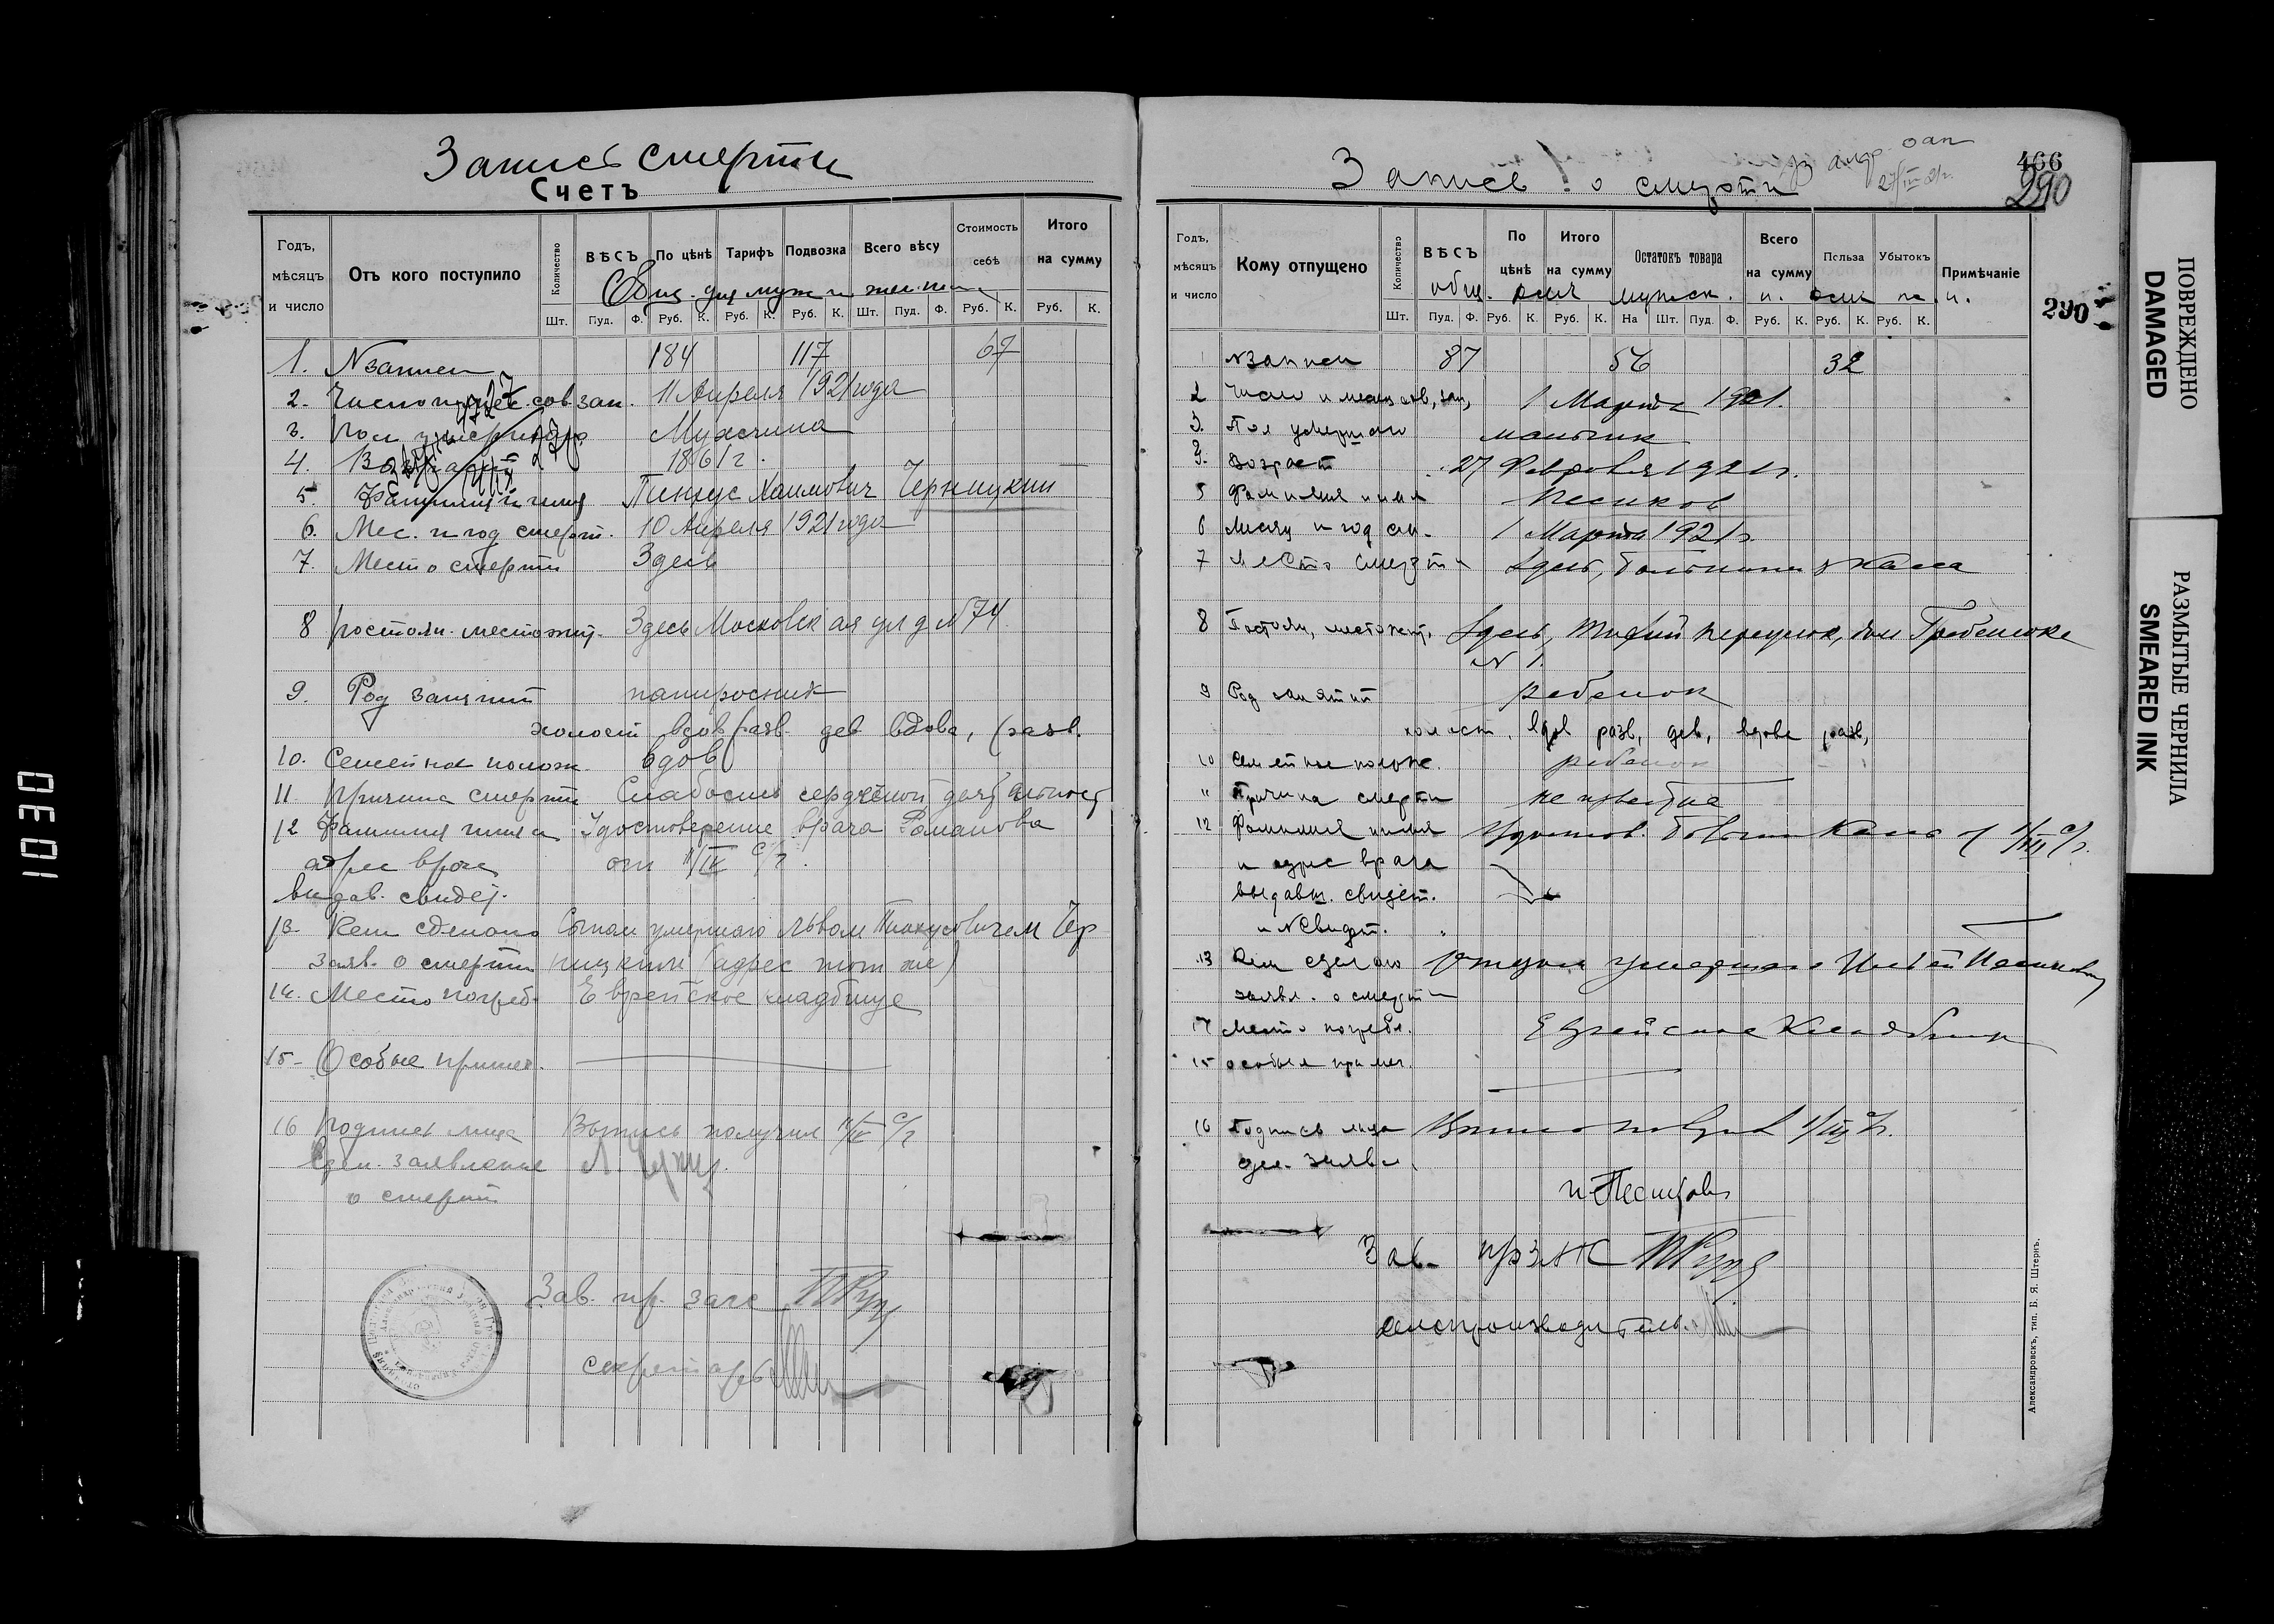 Запись смерти
Счетъ
Годъ, мѣсяцъ и число
Отъ кого поступило
Количество
ВѢСЪ
По цѣнѣ
Тарифъ
Подвозка
Всего вѣсу
Стоимость себѣ
Итого на сумму
Общ. для муж. и женщин
Шт. Пуд. Ф. Руб. К. Руб. К. Руб. К. Шт. Пуд. Ф. Руб. К. Руб. К.
1. N записи 184 117 67
2. Число и мес. сов. зап. 11 Апреля 1921 года
3. Пол умершаго Мужчина
4. Возраст 1861 г.
5. Фамилия и имя Пинхус Хаимович Черницкий
6. Мес. и год смерт. 10 Апреля 1921 года
7. Место смерти Здесь
8 Постоян. местожит. Здесь Московская ул д N 74
9. Род занятий папиросник
холост вдов разв. дев вдова, разв.
10. Семейное полож. вдов
11. Причина смерти Слабость сердечной деятельности
12 Фамилия имя и Удостоверение врача Романова
адрес врача от 11/IV с/г.
выдав. свидет.
13. Кем сделано Сыном умершаго Львом Пинхусовичем Чер
заяв. о смерти ницким (адрес тот же)
14. Место погреб. Еврейское кладбище
15- Особые примеч.
16 Подпись лица Выпись получил 11/IV с/г
сдел. заявление
о смерти
Зав. пр. загс
секретарь
Запись о смерти
27/III 21 г.
466
290
Годъ, мѣсяцъ и число
Кому отпущено
Количество
ВѢСЪ
По цѣнѣ
Итого на сумму
Остатокъ товара
Всего на сумму
Польза
Убытокъ
Примѣчаніе
290
Шт. Пуд. Ф. Руб. К. Руб. К. На Шт. Пуд. Ф. Руб. К. Руб. К. Руб. К.
N записи 87 56 32
2 Число и месяц сов, зап, 1 Марта 1921.
3. Пол умершаго мальчик
3. Возраст 27 Февраля 1921 г.
5 Фамилия и имя Песиков
6 Месяц и год см. 1 Марта 1921 г.
7 Место смерти Здесь, больница
8 Постоян, местожит. Здесь, Тихий переулок, дом
N 1.
9 Род занятий ребенок
холост, вдов разв, дев, вдова разв,
10 Семейное полож. ребенок
11 Причина смерти неизвестна
12 Фамилия имя 1/III с/г.
и адрес врача
выдавш. свидет.
и N Свидет.
13 Кем сделано Отцом умершаго
заявл. о смерти
14 Место погребл. Еврейское Кладбище
15 особыя примеч.
16 Подпись лица 1/III с/г.
сдел. заявл.
и Песиков
Зав. п/р ЗАГС
Делопроизводитель
Александровскъ, тип. Б. Я. Штернъ.
ПОВРЕЖДЕНО
DAMAGED
РАЗМЫТЫЕ ЧЕРНИЛА
SMEARED INK